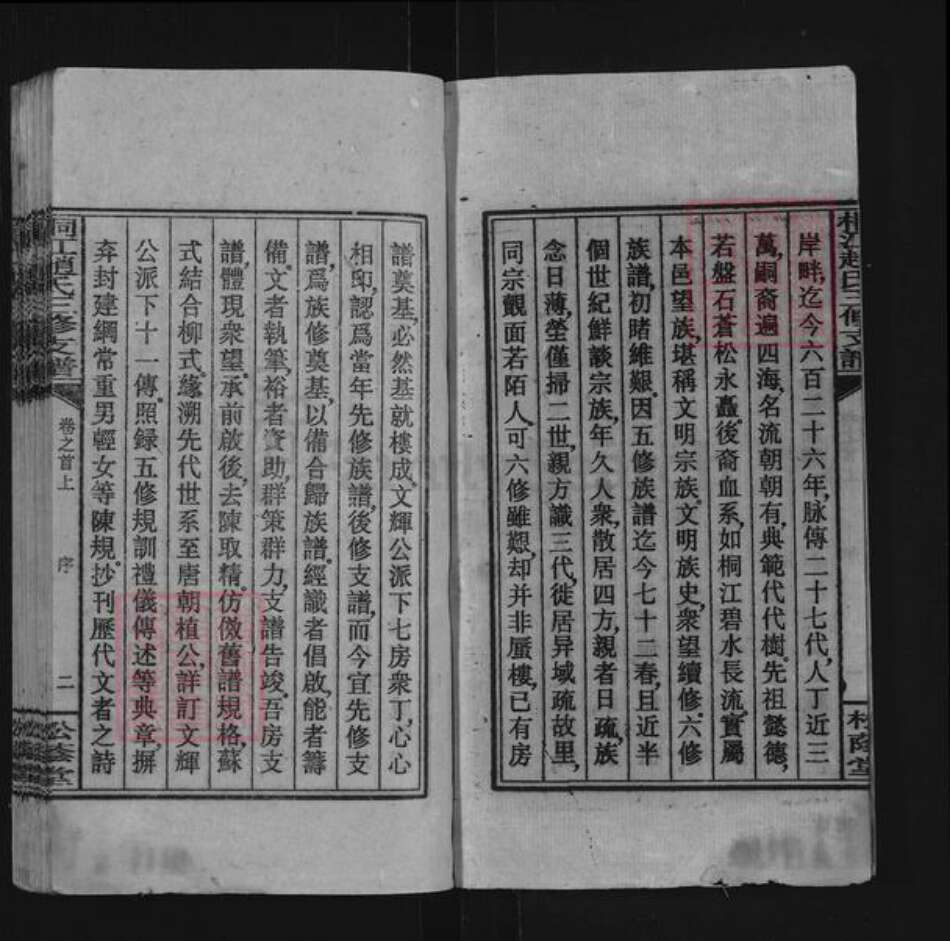 岸畔,迄今六百二十六年,脉傳二十七代,人丁近三
萬,嗣裔遍四海,名流朝朝有,典範代代樹。先祖懿德,
若盤石蒼松永矗。後裔血系,如桐江碧水長流。實屬
本邑望族,堪稱文明宗族。文明族史,衆望續修。六修
族譜,初睹維艱。因五修族譜迄今七十二春,且近半
個世紀鮮談宗族,年久人衆,散居四方,親者日疏,族
念日薄,塋僅掃二世,親方識三代,徙居异域疏故里,
同宗觀面若陌人。可六修雖艱,却并非蜃樓,已有房
譜奠基,必然基就樓成。文輝公派下七房衆丁,心心
相印,認爲當年先修族譜,後修支譜,而今宜先修支
譜,爲族修奠基,以備合歸族譜。經識者倡啟,能者籌
備。文者執筆,裕者資助,群策群力,支譜告竣。吾房支
譜,體現衆望。承前啟後,去陳取精。仿傚舊譜規格,蘇
式結合柳式。緣溯先代世系至唐朝植公,詳訂文輝
公派下十一傳。照録五修規訓禮儀傳述等典章,摒
弃封建綱常重男輕女等陳規。抄刊歷代文者之詩
桐江趙氏三修支譜
卷之首上
序
二